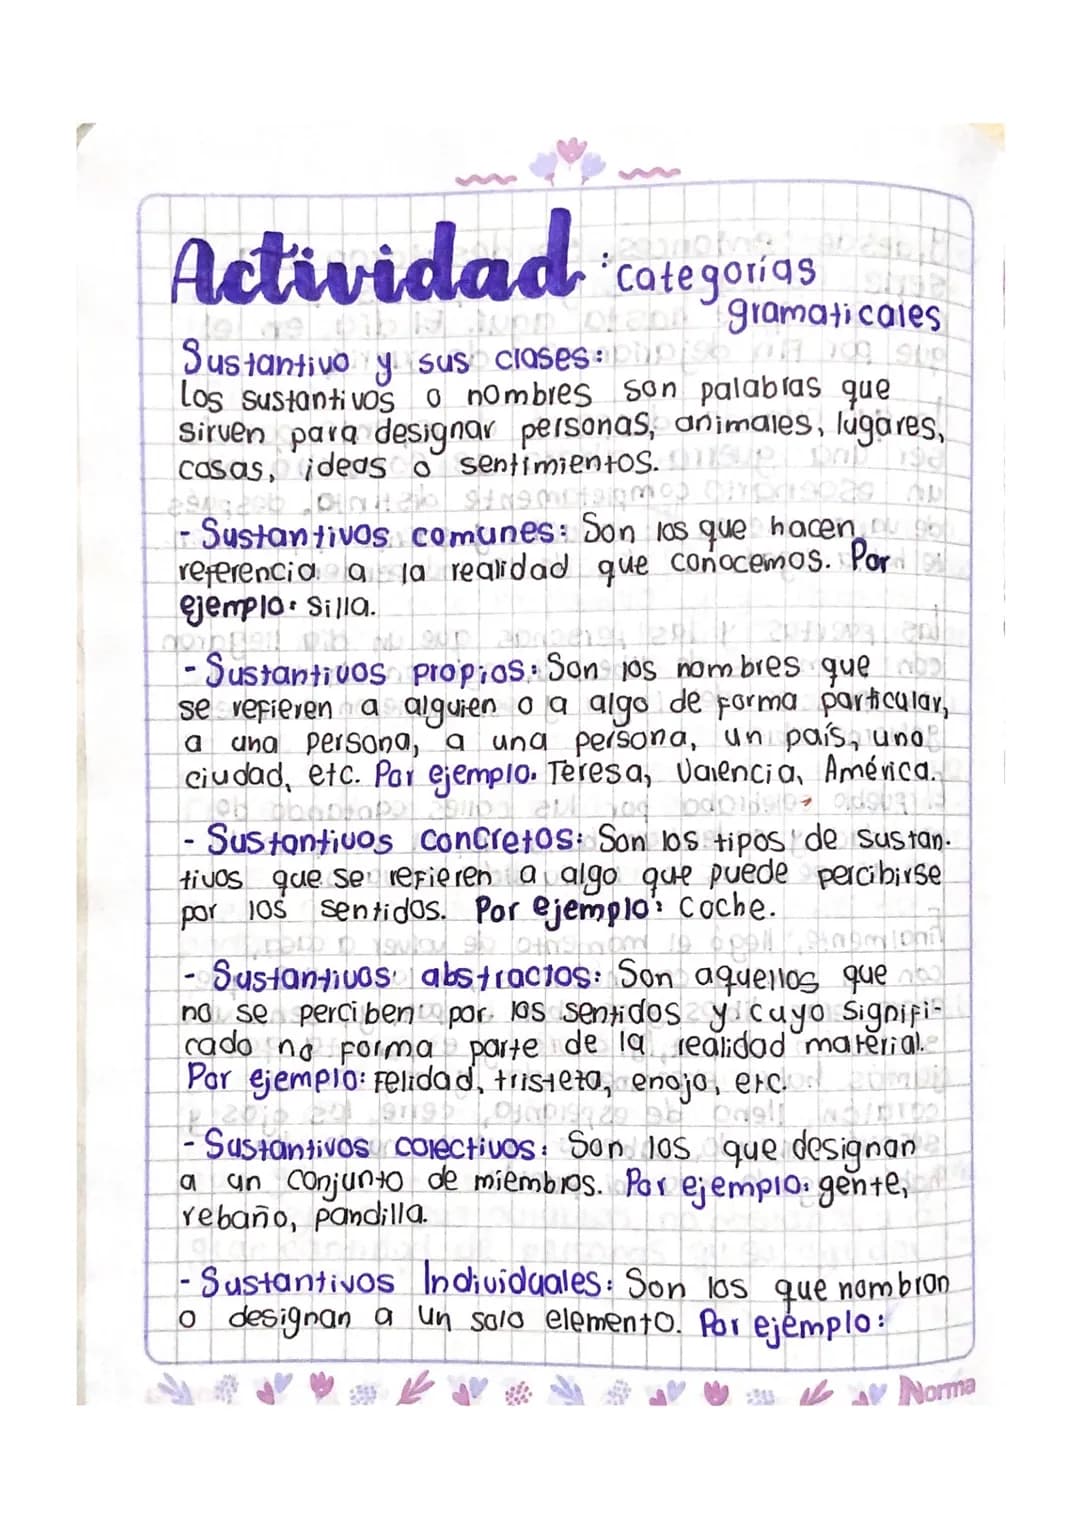 Actividad : categorías
gramaticales
Sustantivo y sus clases:
Los sustantivos o nombres son palabras que
sirven para designar personas, animales, lugares,
cosas, ideas o sentimientos.
- Sustantivos comunes: Son los que hacen
referencia a la realidad que conocemos. Por
ejemplo: Silla.
- Sustantivos propios: Son los nombres que
se refieren a alguien o a algo de forma particular,
a una persona, a una persona, un país, una
ciudad, etc. Por ejemplo. Teresa, Valencia, América.
- Sustantivos concretos: Son los tipos de sustan-
tivos que se refieren a algo que puede percibirse
por los sentidos. Por ejemplo: Coche.
- Sustantivos abstractos: Son aquellos que
no se perciben por los sentidos y cuyo signifi-
cado no forma parte de la realidad material.
Por ejemplo: Felidad, tristeta, enojo, etc.
- Sustantivos colectivos: Son los que designan
a un conjunto de miembros. Por ejemplo: gente,
rebaño, pandilla.
- Sustantivos Individuales: Son los que nombran
o designan a un solo elemento. Por ejemplo:
Norma